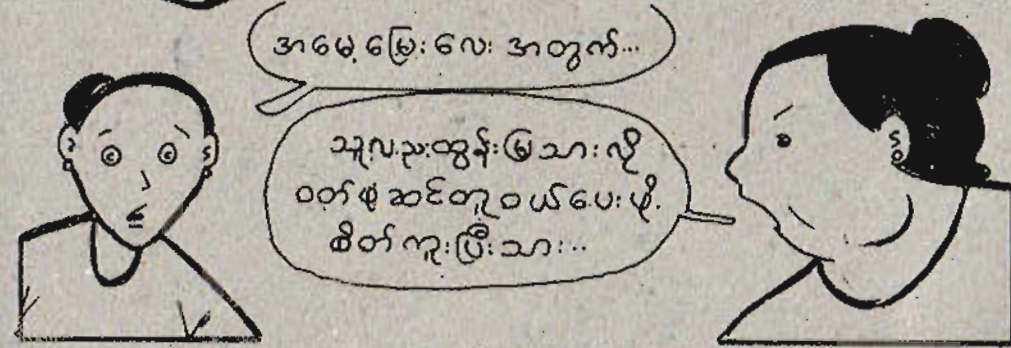 အမေ့မြေးလေးအတွက်...
သူ့လည်းထွန်းမြသားလို
ဝတ်စုံဆင်တူဝယ်ပေးဖို့
စိတ်ကူးပြီးသား...